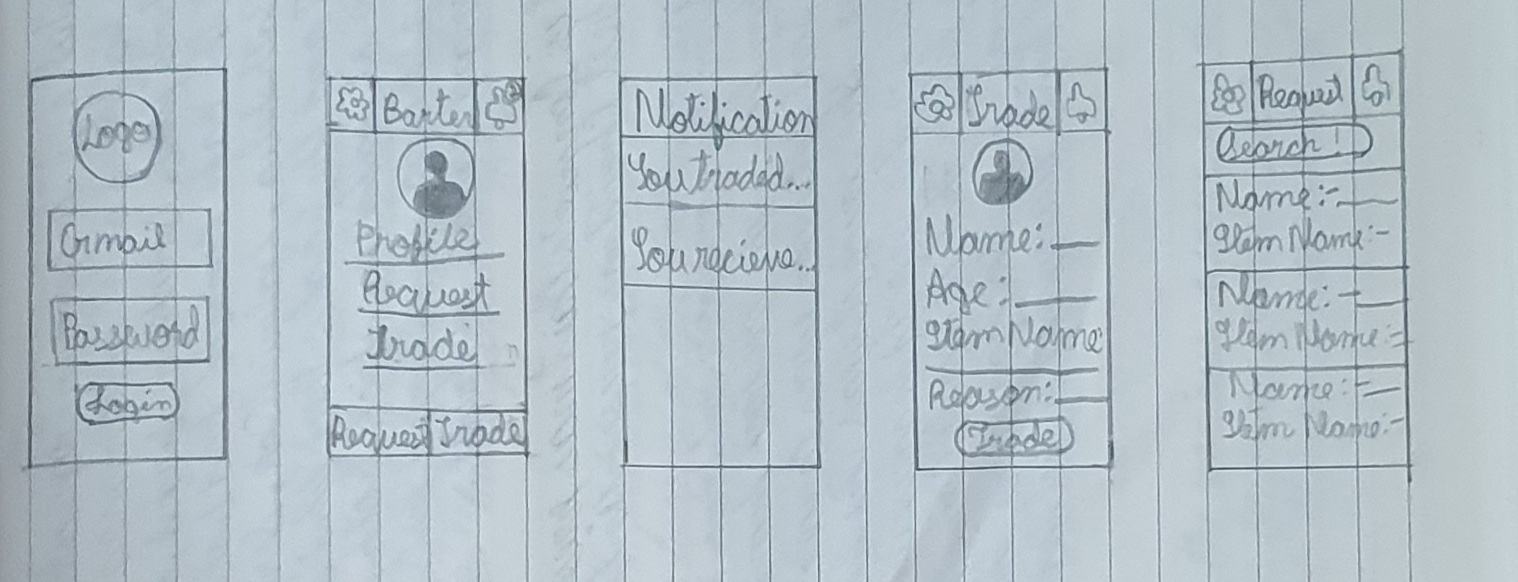 Logo
Gmail
Password
Login
Barter
Profile
Request
Trade
Request Trade
Notification
You traded...
You recieve...
Trade
Name:
Age:
Item Name:
Reason:
Trade
Request
Search!
Name:-
Item Name:-
Name:-
Item Name:-
Name:-
Item Name:-